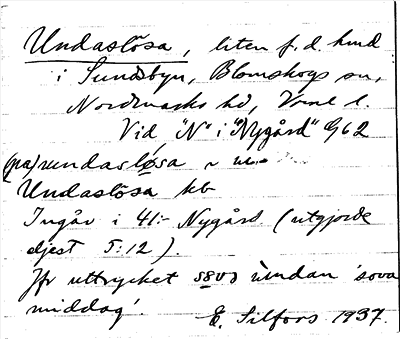 Undaslösa, liten f. d. lund
i Sundsbyn, Blomskogs sn,
Nordmarks hd, Vrml l.
Vid "N" i "Nygård" G62
(på) undaslösa ~
Undaslösa kb
Ingår i 41:- Nygård (utgjorde
djest 5:12).
Jfr uttrycket undan 'sova
middag'.
E. Silfors 1937.